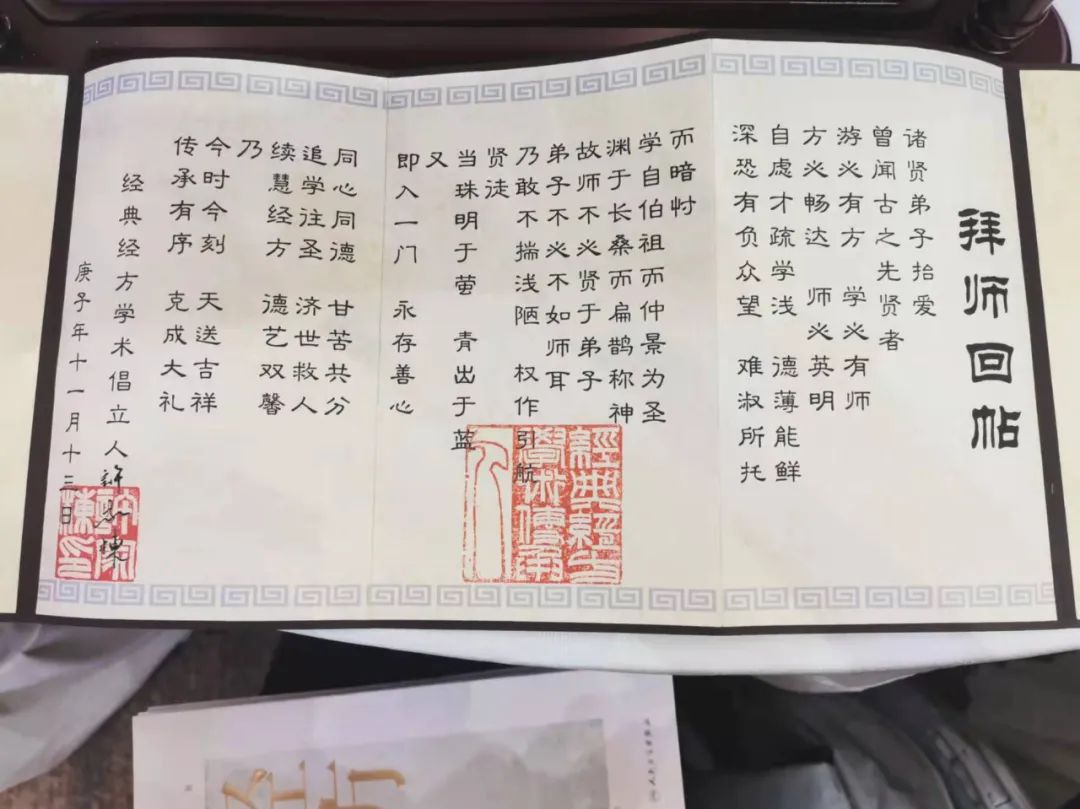 拜师回帖
诸贤弟子抬爱
曾闻古之先贤者
游必有方 学必有师
方必畅达 师必英明
自虑才疏学浅 德薄能鲜
深恐有负众望 难淑所托
而暗忖
学自伯祖而仲景为圣
渊于长桑而扁鹊称神
故师不必贤于弟子
弟子不必不如师耳
乃敢不揣浅陋 权作引航
贤徒
当珠明于萤 青出于蓝
又
即入一门 永存善心
同心同德 甘苦共分
追学往圣 济世救人
续慧经方 德艺双馨
乃
今时今刻 天送吉祥
传承有序 克成大礼
经典经方学术倡立人 許家栋
庚子年十一月十三日
經典經方
學術傳承
人
許家
棟印